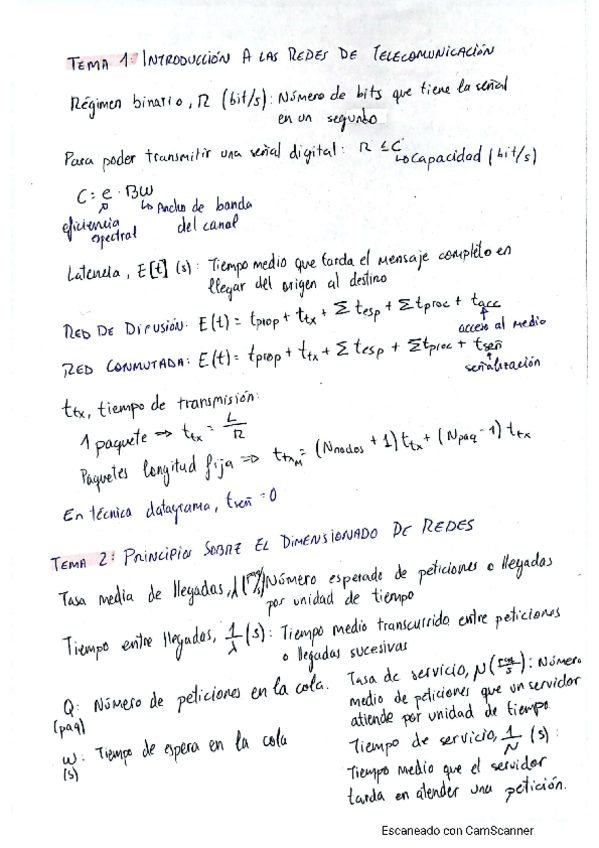 TEMA 1: INTRODUCCIÓN A LAS REDES DE TELECOMUNICACIÓN
Régimen binario, R (bit/s): Número de bits que tiene la señal
en un segundo
Para poder transmitir una señal digital: R ≤ C
↳ capacidad (bit/s)
C = e · BW
↳ Ancho de banda
del canal
eficiencia
espectral
Latencia, E[t] (s): Tiempo medio que tarda el mensaje completo en
llegar del origen al destino
RED DE DIFUSIÓN: E(t) = tprop + ttx + Σ tesp + Σ tproc + tacc
acceso al medio
RED CONMUTADA: E(t) = tprop + ttx + Σ tesp + Σ tproc + tseñ
señalización
ttx, tiempo de transmisión:
1 paquete => ttx = L/R
Paquetes longitud fija => ttxM = (Nnodos + 1) ttx + (Npaq - 1) ttx
En técnica datagrama, tseñ = 0
TEMA 2: PRINCIPIOS SOBRE EL DIMENSIONADO DE REDES
Tasa media de llegadas, λ (paq/s) Número esperado de peticiones o llegadas
por unidad de tiempo
Tiempo entre llegadas, 1/λ (s): Tiempo medio transcurrido entre peticiones
o llegadas sucesivas
Q: Número de peticiones en la cola.
(paq)
w: Tiempo de espera en la cola
(s)
Tasa de servicio, μ (paq/s): Número
medio de peticiones que un servidor
atiende por unidad de tiempo
Tiempo de servicio, 1/μ (s):
Tiempo medio que el servidor
tarda en atender una petición.
Escaneado con CamScanner